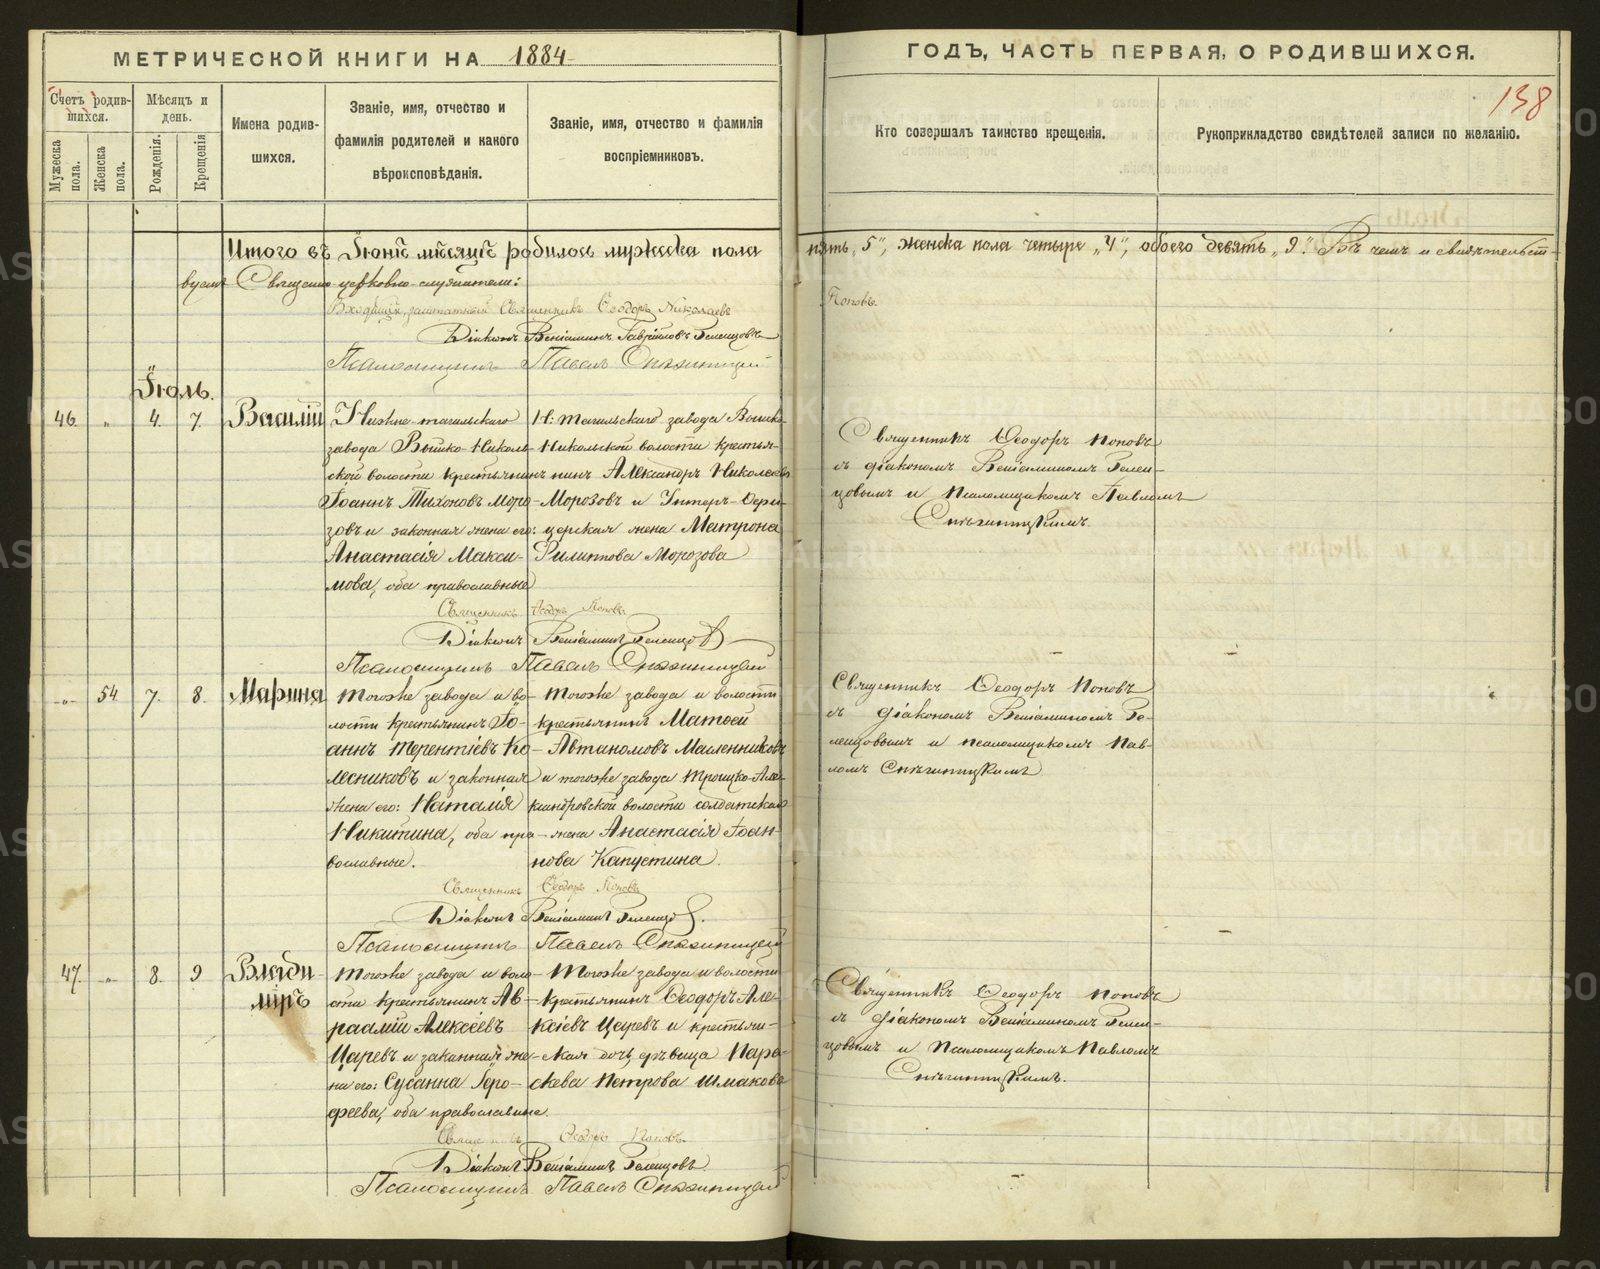 МЕТРИЧЕСКОЙ КНИГИ НА 1884
ГОДЪ, ЧАСТЬ ПЕРВАЯ, О РОДИВШИХСЯ.
138
Счетъ родив-
шихся.
Мужеска пола.
Женска пола.
Мѣсяцъ и
день.
Рожденія.
Крещенія
Имена родив-
шихся.
Званіе, имя, отчество и
фамилія родителей и какого
вѣроисповѣданія.
Званіе, имя, отчество и фамилія
воспріемниковъ.
Кто совершалъ таинство крещенія.
Рукоприкладство свидѣтелей записи по желанію.
Итого въ Іюнѣ мѣсяцѣ родилось мужеска пола
пять „5", женска пола четыре „4", обоего девять „9". Въ чемъ и свидѣтельст-
вуемъ Священно-церковно-служители:
заштатный Священникъ Ѳеодоръ Николаевъ
Поповъ.
Діаконъ Веніаминъ Гавріиловъ Телещовъ
Псаломщикъ Павелъ
Іюль.
46 „ 4. 7. Василій
Нижне-тагильскаго
завода Выйско-Николь-
ской волости крестьянинъ
Іоаннъ Тихоновъ Моро-
зовъ и законная жена его:
Анастасія Макси-
мова, оба православные
Н: Тагильскаго завода Выйско-
Никольской волости крестья-
нинъ Александръ Николаевъ
Морозовъ и Унтеръ-Офи-
церская жена Матрона
Филиппова Морозова
Священникъ Ѳеодоръ Поповъ
съ діакономъ Веніаминомъ Телещ-
цовымъ и псаломщикомъ Павломъ
Священникъ Ѳеодоръ Поповъ.
Діаконъ Веніаминъ Телещовъ
Псаломщикъ Павелъ
„ 54 7. 8. Марина
Тогоже завода и во-
лости крестьянинъ Іо-
аннъ Терентіевъ Ко-
лесниковъ и законная
жена его: Наталія
Никитина, оба пра-
вославные.
Тогоже завода и волости
крестьянинъ Матѳей
Автаномовъ Масленниковъ
и тогоже завода Троицко-Але-
ксандровской волости солдатская
жена Анастасія Іоан-
нова Капустина.
Священникъ Ѳеодоръ Поповъ
съ діакономъ Веніаминомъ Те-
лещовымъ и псаломщикомъ Пав-
ломъ
Священникъ Ѳеодоръ Поповъ
Діаконъ Веніаминъ Телещовъ.
Псаломщикъ Павелъ
47. „ 8. 9 Влади-
міръ
Тогоже завода и воло-
сти крестьянинъ Ав-
раамій Алексѣевъ
Царевъ и законная же-
на его: Сусанна Геро-
феева, оба православные.
Тогоже завода и волости
крестьянинъ Ѳеодоръ Але-
ксѣевъ Царевъ и крестьян-
ская дочь, дѣвица Пара-
скева Петрова Шмакова
Священникъ Ѳеодоръ Поповъ
съ діакономъ Веніаминомъ Телещ-
цовымъ и Псаломщикомъ Павломъ
Священникъ Ѳеодоръ Поповъ.
Діаконъ Веніаминъ Телещовъ
Псаломщикъ Павелъ
METRIKI.GASO-URAL.RU